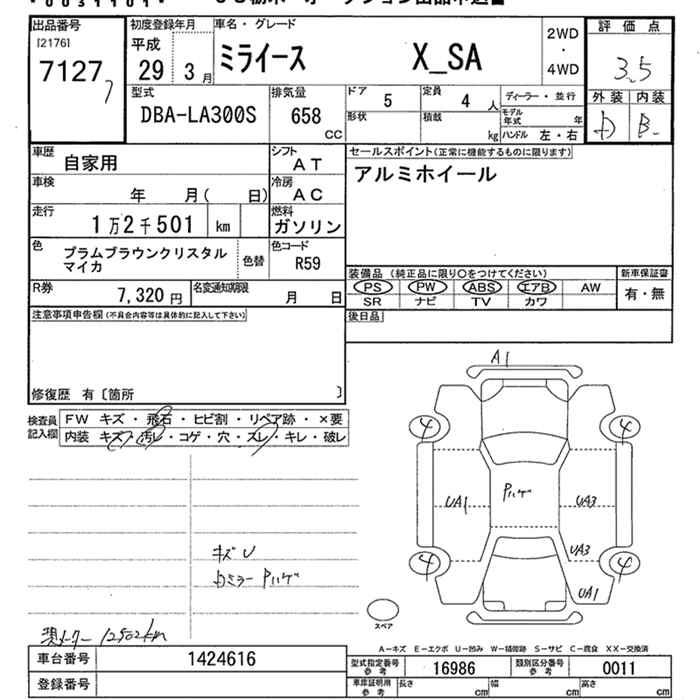 *0031101*
出品番号
[2176]
71277
初度登録年月
平成
29 3月
車名・グレード
ミライース X_SA
2WD
・
4WD
評価点
3.5
外装 内装
D B-
型式
DBA-LA300S
排気量
658
CC
ドア
5
定員
4 人
ディーラー・並行
形状
積載
kg
モデル年式 年
ハンドル 左・右
車歴
自家用
シフト
AT
車検
年 月( 日)
冷房
AC
走行
1万2千501 km
燃料
ガソリン
色
プラムブラウンクリスタル
マイカ
色替
色コード
R59
R券
7,320 円
名変通知期限
月 日
セールスポイント(正常に機能するものに限ります)
アルミホイール
装備品 (純正品に限り○をつけてください)
PS PW ABS エアB AW
SR ナビ TV カワ
新車保証書
有・無
注意事項申告欄(不具合内容等は具体的に記入して下さい)
後日品
修復歴 有〔箇所 〕
検査員
記入欄
FW キズ・飛石・ヒビ割・リペア跡・×要
内装 キズ・汚レ・コゲ・穴・スレ・キレ・破レ
A1
4
4
UA1
Pハゲ
UA3
UA3
4
4
UA1
キズU
カミラー Pハゲ
スペア
現メーター 12502km
A-キズ E-エクボ U-凹み W-補修跡 S-サビ C-腐食 XX-交換済
車台番号
1424616
登録番号
型式指定番号
参考
16986
類別区分番号
参考
0011
車庫証明用
参考
長さ cm
幅 cm
高さ cm